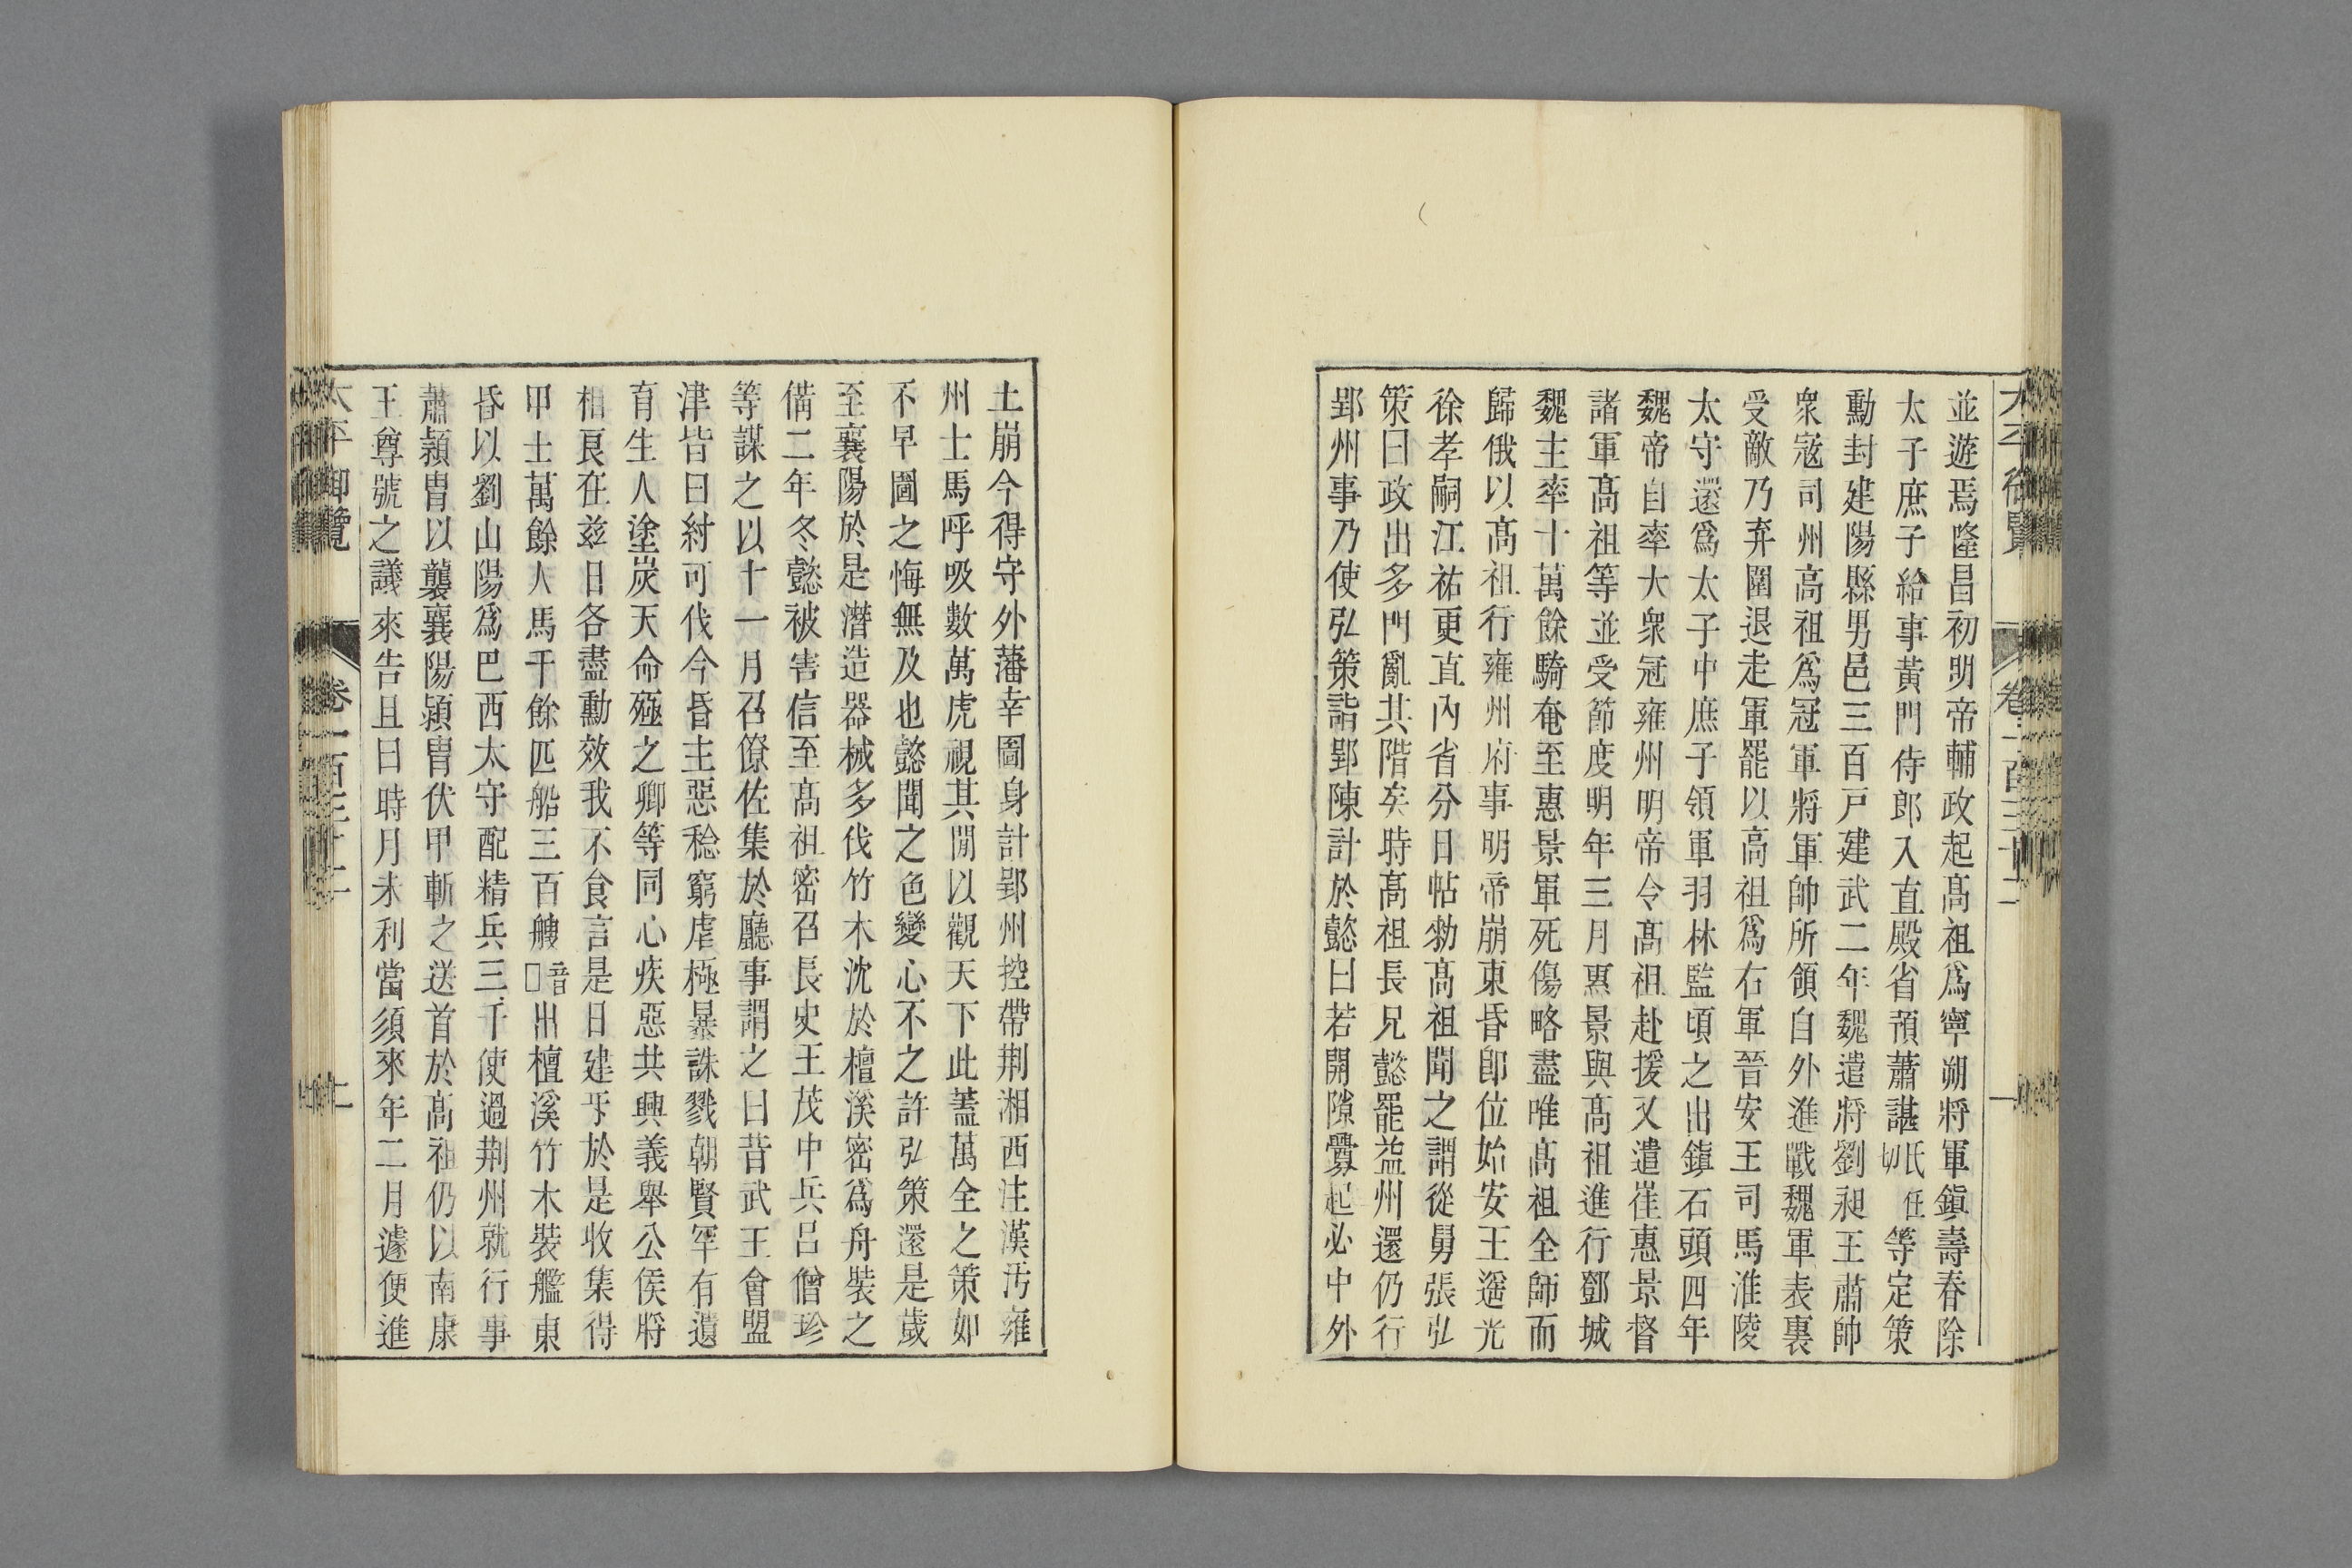 並遊焉隆昌初明帝輔政起髙祖爲寧朔將軍鎭壽春除
太子庶子給事黃門侍郎入直殿省預蕭諶氏任切等定策
勳封建陽縣男邑三百戸建武二年魏遣將劉昶王肅帥
衆寇司州高祖爲冠軍將軍帥所領自外進戰魏軍表裏
受敵乃弃圍退走軍罷以高祖爲右軍晉安王司馬淮陵
太守還爲太子中庶子領軍羽林監頃之出鎮石頭四年
魏帝自率大衆冦雍州明帝令髙祖赴援又遣崔惠景督
諸軍髙祖等並受節度明年三月惠景與髙祖進行鄧城
魏主率十萬餘騎奄至惠景軍死傷略盡唯髙祖全師而
歸俄以髙祖行雍州府事明帝崩東昏卽位始安王遥光
徐孝嗣江祐更直內省分日帖勑髙祖聞之謂從舅張弘
策曰政出多門亂其階矣時髙祖長兄懿罷益州還仍行
郢州事乃使弘策詣郢陳計於懿曰若開隙釁起必中外
土崩今得守外藩幸圖身計郢州控帶荆湘西注漢沔雍
州士馬呼吸數萬虎視其閒以觀天下此蓋萬全之策如
不早圖之悔無及也懿聞之色變心不之許弘策還是歲
至襄陽於是潛造器械多伐竹木沈於檀溪密爲舟裝之
備二年冬懿被害信至髙祖密召長史王茂中兵呂僧珍
等謀之以十一月召僚佐集於廳事謂之曰昔武王會盟
津皆曰紂可伐今昏主惡稔窮虐極暴誅戮朝賢罕有遺
育生人塗炭天命殛之卿等同心疾惡共興義舉公侯將
相良在兹日各盡勳效我不食言是日建牙於是收集得
甲士萬餘人馬千餘匹船三百艘音□出檀溪竹木裝艦東
昏以劉山陽爲巴西太守配精兵三千使過荆州就行事
蕭潁胄以襲襄陽潁胄伏甲斬之送首於髙祖仍以南康
王尊號之議來告且曰時月未利當須來年二月遽便進